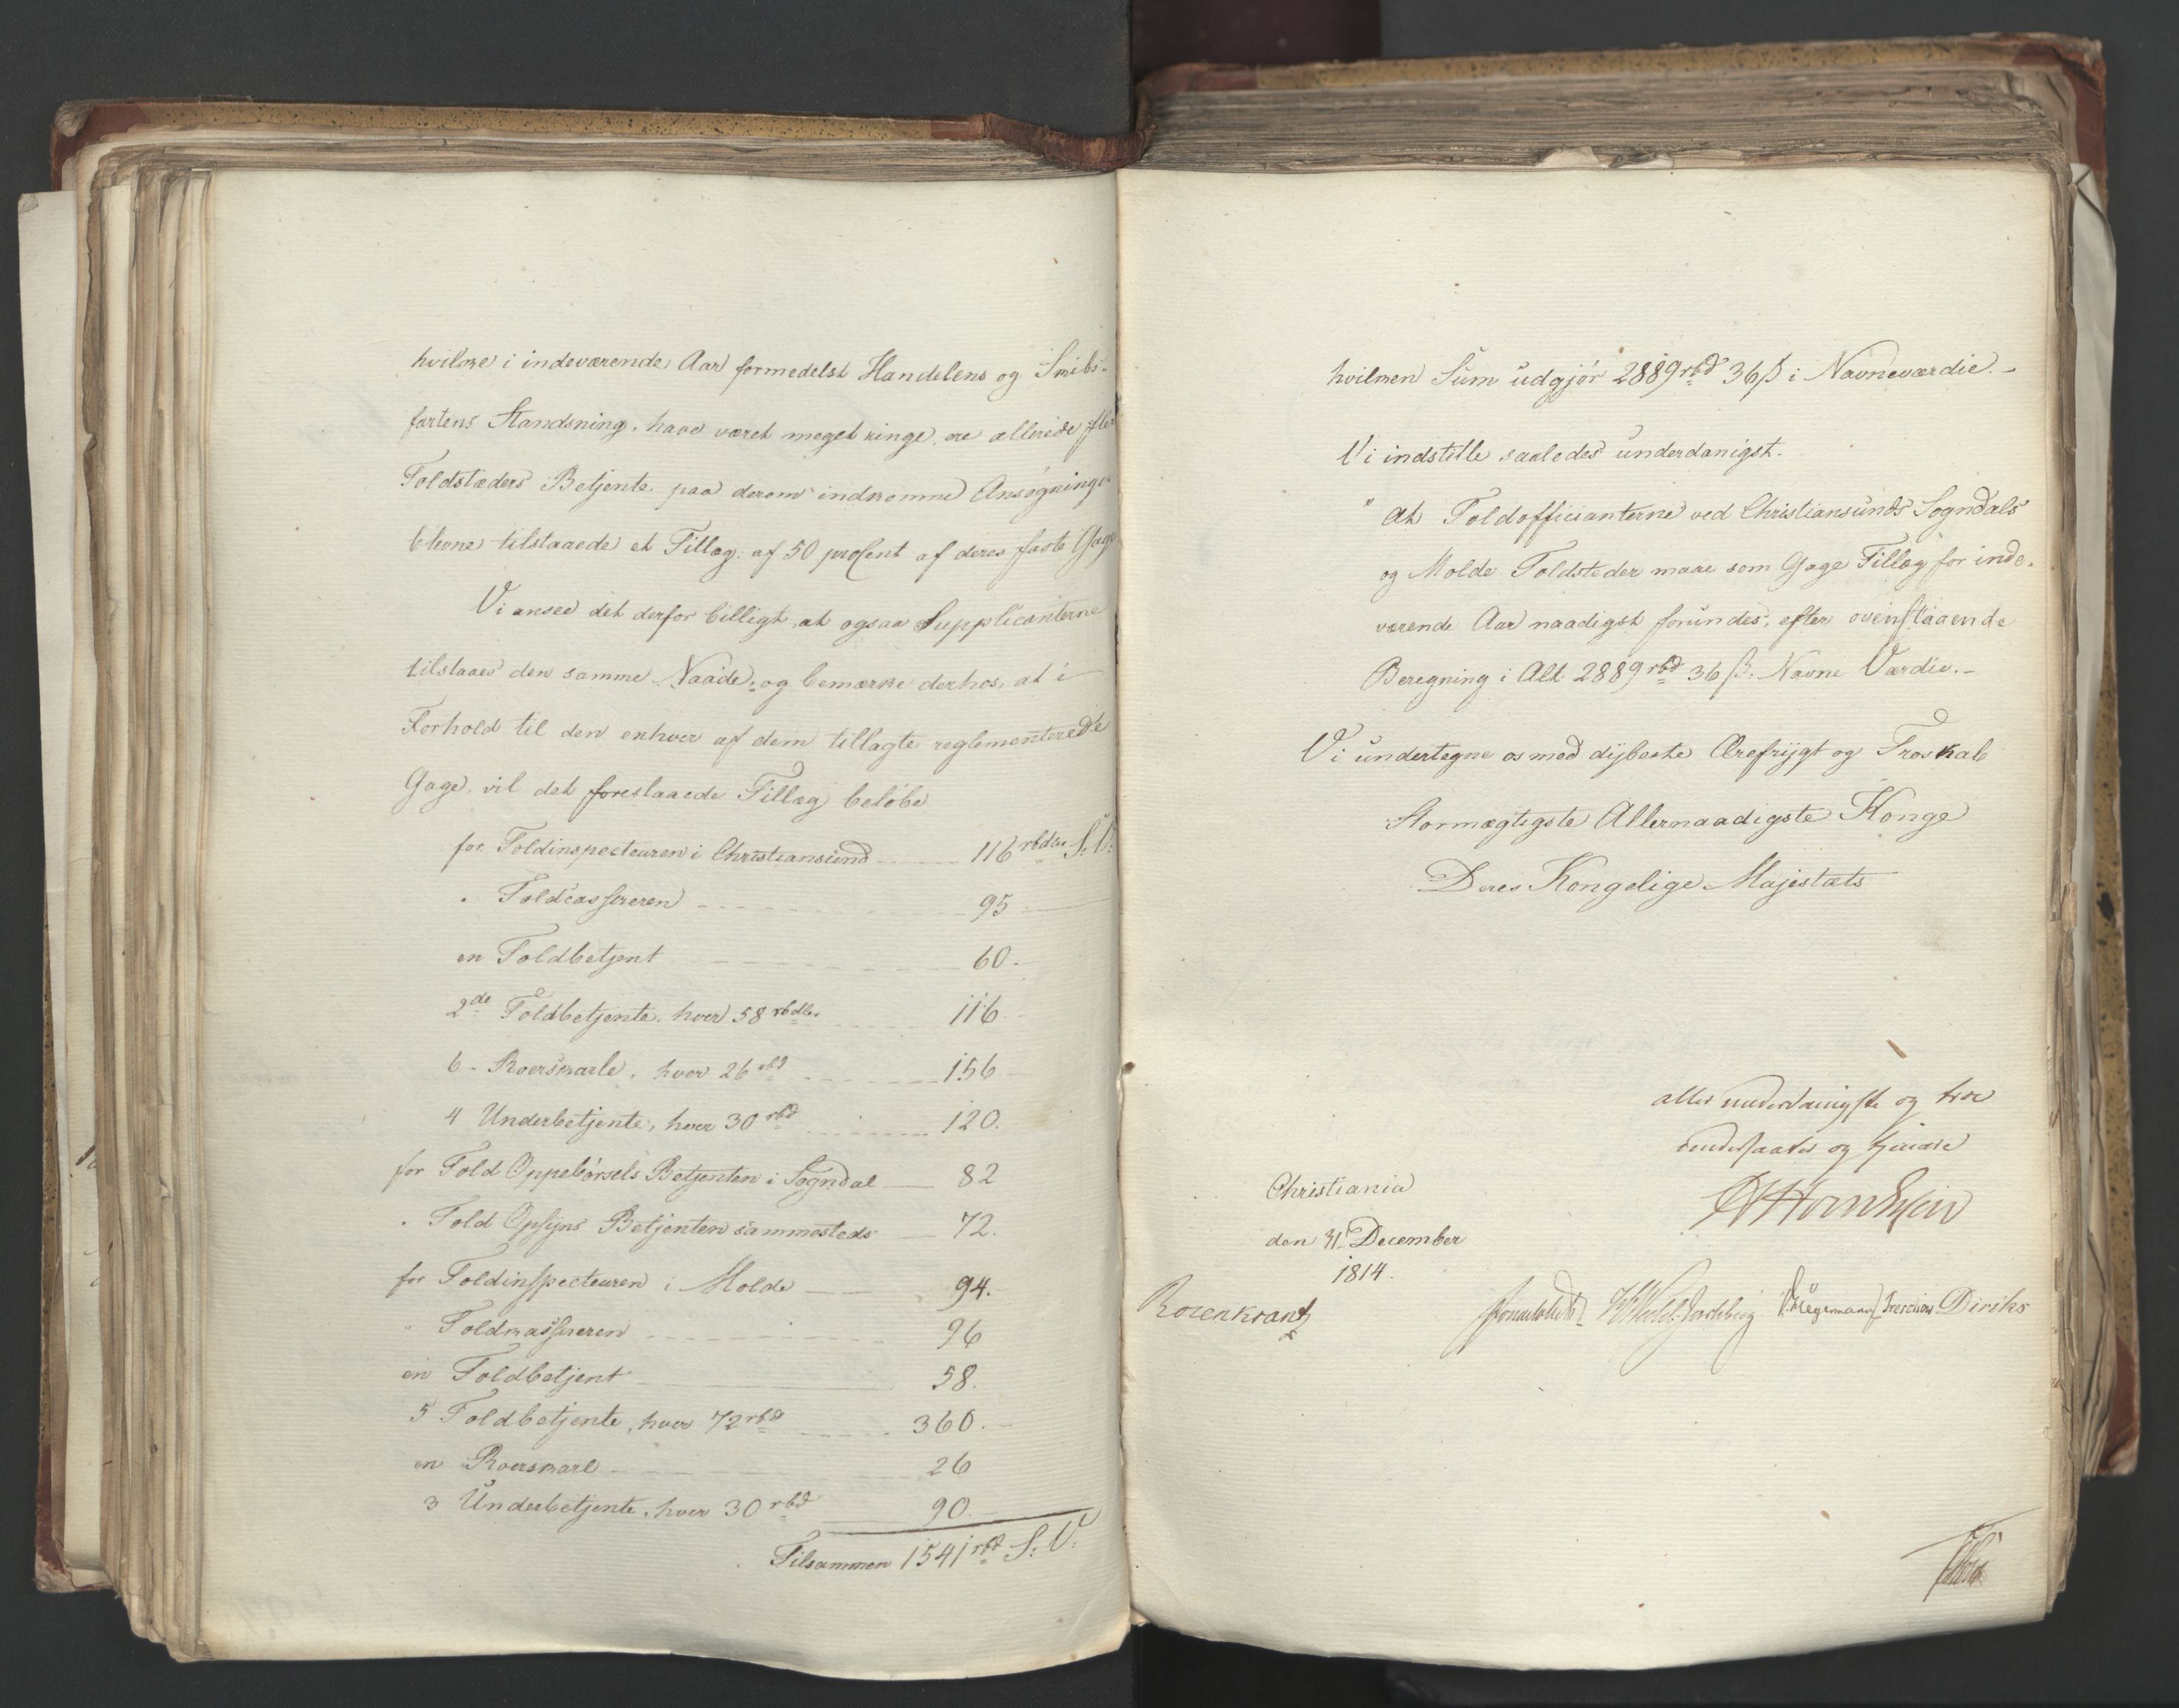 hvilke i indeværende Aar formedelst Handelens og Skibs-
fartens Standsning, have været meget ringe, ere allerede flere
Toldstæders Betjente paa derom indkomne Ansøgninger
blevne tilstaaede et Tillæg af 50 proCent af deres faste Gage
Vi ansee det derfor billigt, at ogsaa Supplicanterne
tilstaaes den samme Naade, og bemærke derhos, at i
Forhold til den enhver af dem tillagte reglementerede
Gage, vil det foreslaaede Tillæg beløbe
for Toldinspecteuren i Christiansund 116 rbdlr S: V:
" Toldcassereren 95
en Toldbetjent 60.
2de Toldbetjente, hver 58 rbdlr 116
6 - Roerskarle, hver 26 rbd 156
4 Underbetjente, hver 30 rbd 120.
for Told Oppebørsels Betjenten i Sogndal 82
" Told Opsyns Betjenten sammesteds 72.
for Toldinspecteuren i Molde 94.
" Toldkassereren 96
en Toldbetjent 58.
5 Toldbetjente, hver 72 rbd 360.
en Roerskarl 26
3 Underbetjente, hver 30 rbd 90.
Tilsammen 1541 rbd S: V:
hvilken Sum udgjør 2889 rbd 36 ß i Navneværdie.-
Vi indstille saaledes underdanigst.
" At Toldofficianterne ved Christiansunds Sogndals
og Molde Toldsteder maae som Gage Tillæg for inde-
værende Aar naadigst forundes, efter ovenstaaende
Beregning i Alt 2889 rbd 36 ß. Navne Værdie.-
Vi undertegne os med dybeste Ærefrygt og Troskab
Stormægtigste Allernaadigste Konge
Deres Kongelige Majestæts
allerunderdanigste og troe
undersaatter og tjenere
Christiania
den 31 December
1814.
Rosenkrantz Sommerhielm HWedel Jarlsberg Hegermann Treschow Diriks